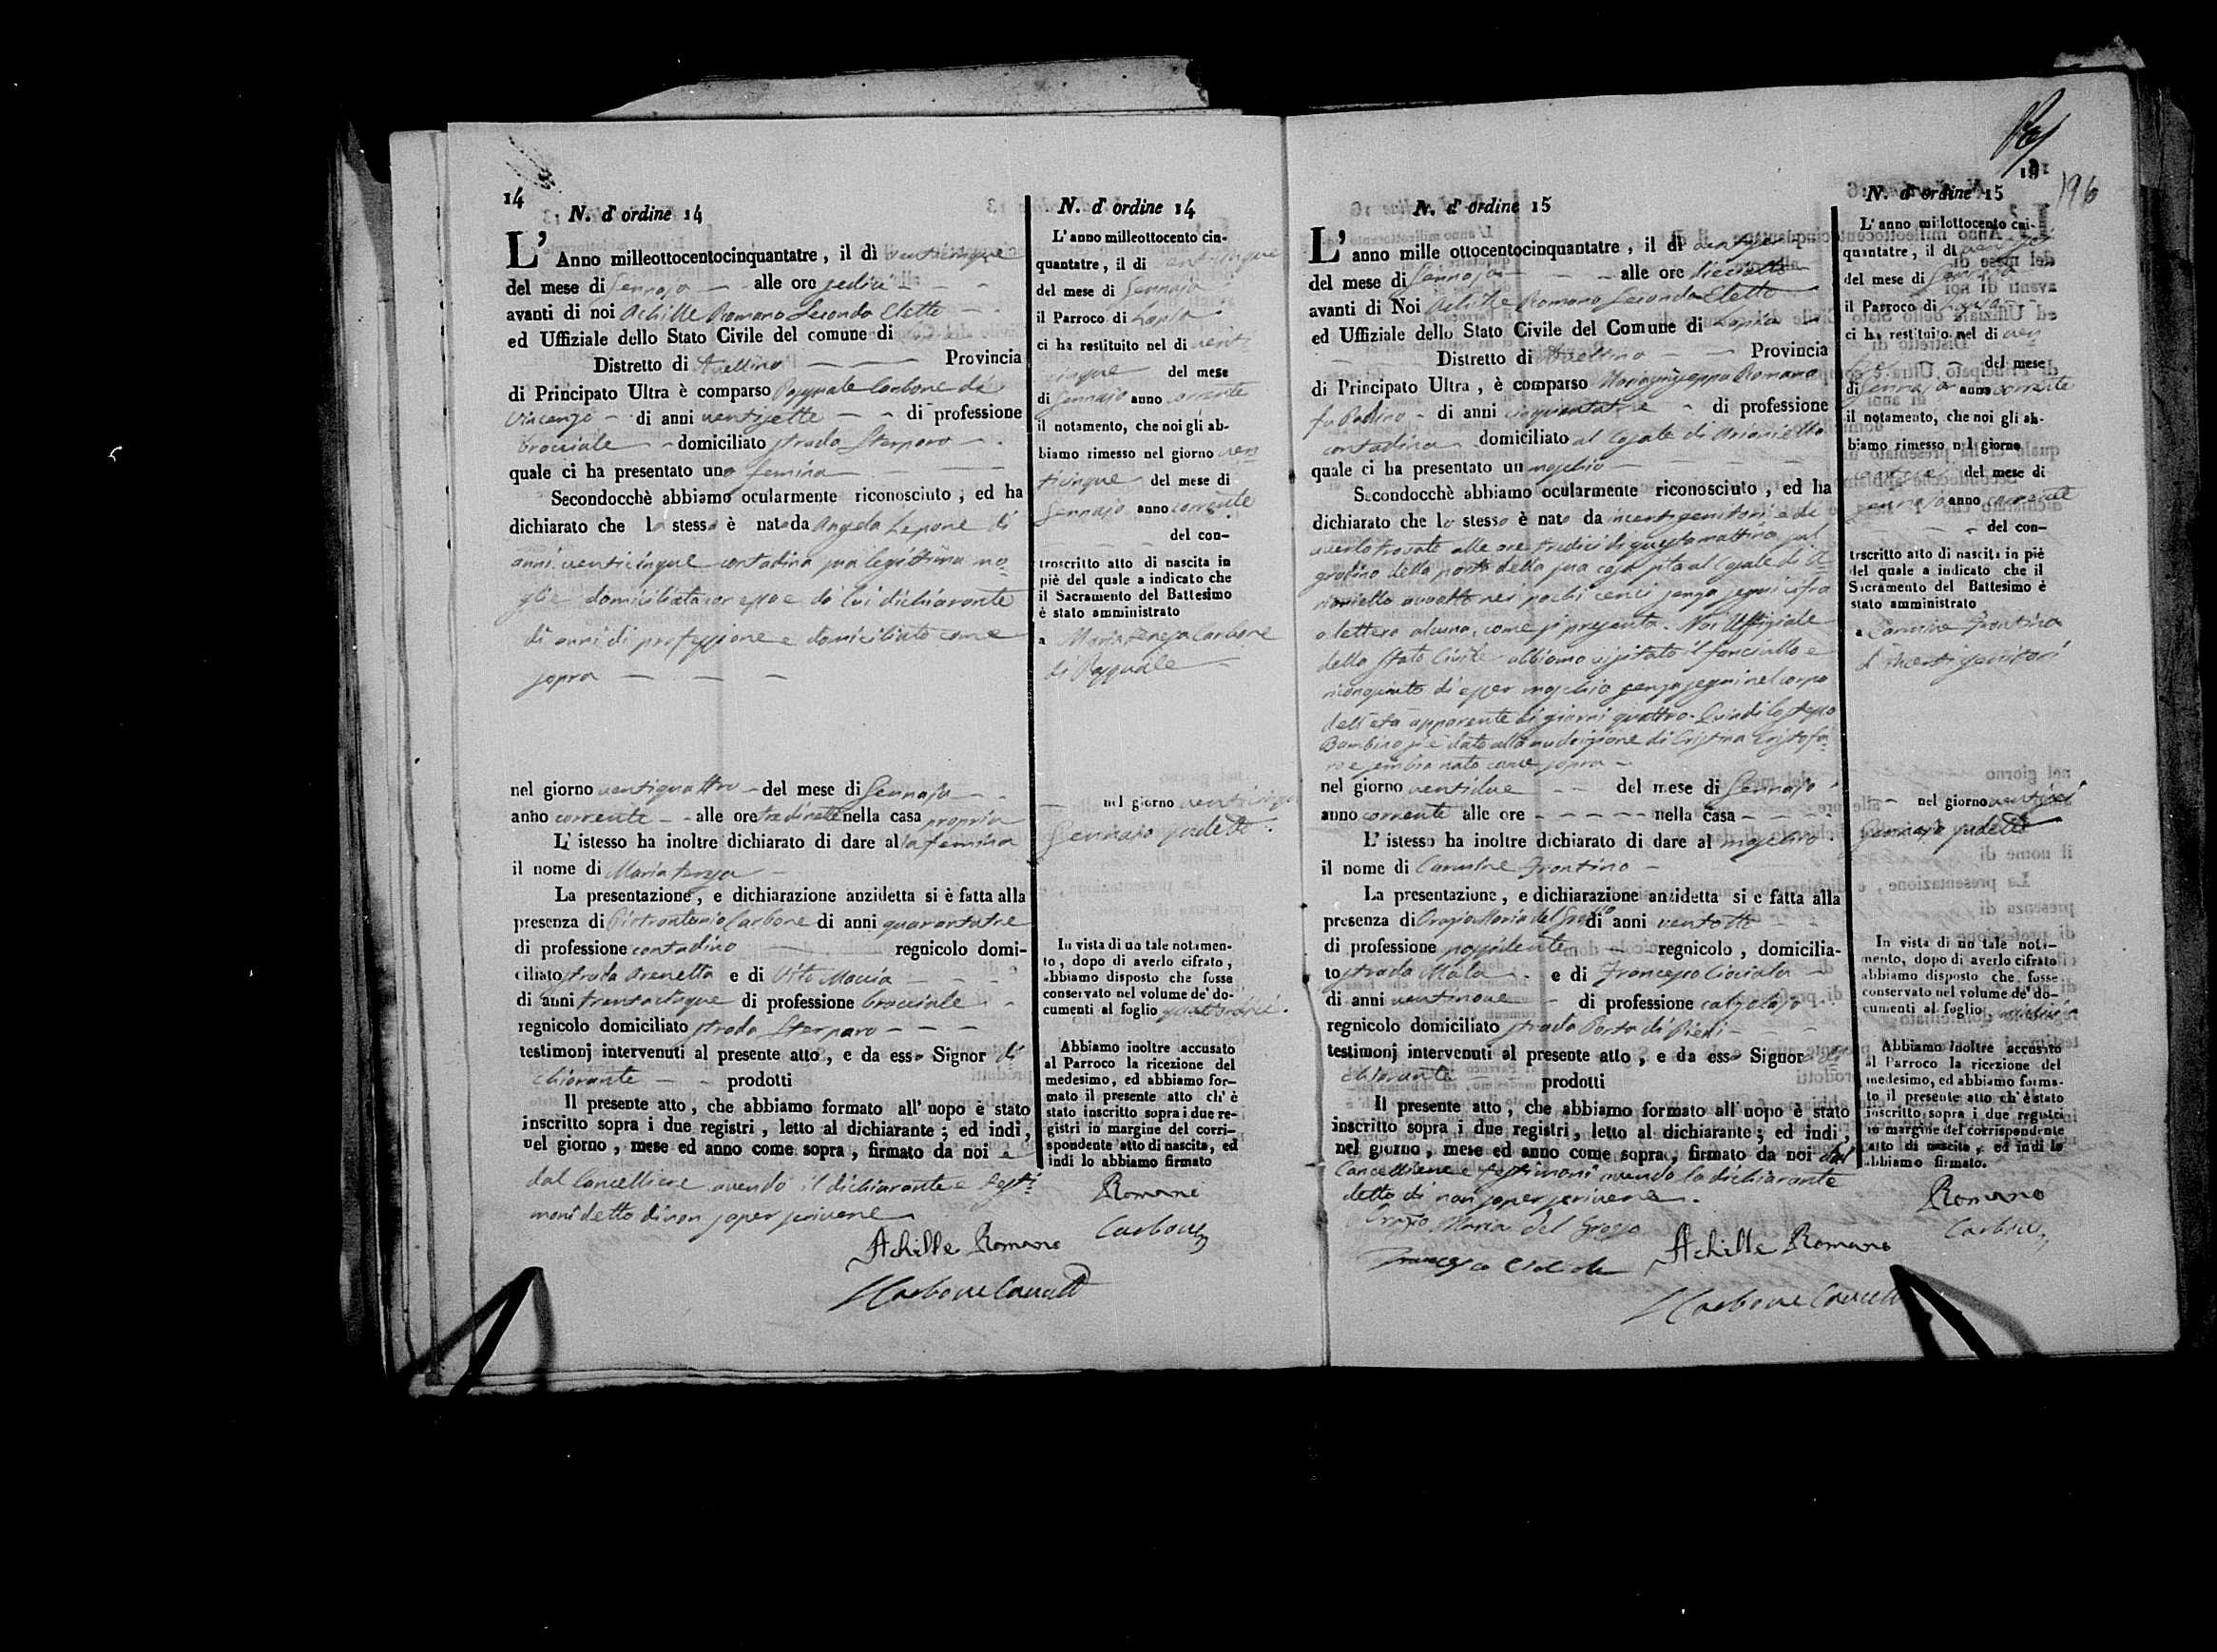 14
N. d' ordine 14
L' Anno milleottocentocinquantatre, il dì venticinque
del mese di Gennajo — alle ore sedici — —
avanti di noi Achille Romano Secondo Eletto —
ed Uffiziale dello Stato Civile del comune di
Distretto di Avellino — — Provincia
di Principato Ultra è comparso Pasquale Carbone di
Vincenzo — di anni ventisette — — di professione
bracciale — domiciliato strada Sterparo — .
quale ci ha presentato una femina — — —
Secondocchè abbiamo ocularmente riconosciuto, ed ha
dichiarato che la stessa è nata da Angela Lepore di
anni venticinque contadina sua legittima mo-
glie domiciliata con esso e da lui dichiarante
di anni di professione e domiciliato come
sopra — — —
nel giorno ventiquattro — del mese di Gennajo — —
anno corrente — — alle ore nella casa propria
L' istesso ha inoltre dichiarato di dare alla femina
il nome di Maria Teresa —
La presentazione, e dichiarazione anzidetta si è fatta alla
presenza di Carbone di anni quarantatre
di professione contadino — regnicolo domi-
ciliato strada e di Vito — —
di anni trentacinque di professione bracciale —
regnicolo domiciliato strada Sterparo — — —
testimonj intervenuti al presente atto, e da esso Signor di
chiarante — — prodotti
Il presente atto, che abbiamo formato all' uopo è stato
inscritto sopra i due registri, letto al dichiarante; ed indi,
nel giorno, mese ed anno come sopra, firmato da noi e
dal Cancelliere avendo il dichiarante e testi-
moni detto di non saper scrivere
Achille Romano
Carbone
N. d' ordine 14
L' anno milleottocento cin-
quantatre, il di venticinque
del mese di Gennajo
il Parroco di
ci ha restituito nel di venti
cinque del mese
di Gennajo anno corrente
il notamento, che noi gli ab-
biamo rimesso nel giorno ven
ticinque del mese di
Gennajo anno corrente
del con-
troscritto atto di nascita in
piè del quale a indicato che
il Sacramento del Battesimo
è stato amministrato
a Maria Teresa Carbone
di Pasquale —
— nel giorno venticinque
Gennajo sudetto.
In vista di un tale notamen-
to, dopo di averlo cifrato,
abbiamo disposto che fosse
conservato nel volume de' do-
cumenti al foglio quattordici.
Abbiamo inoltre accusato
al Parroco la ricezione del
medesimo, ed abbiamo for-
mato il presente atto ch' è
stato inscritto sopra i due re-
gistri in margine del corri-
spondente atto di nascita, ed
indi lo abbiamo firmato
Romano
Carbone
196
N. d' ordine 15
L' anno mille ottocentocinquantatre, il dì
del mese di Gennajo — — alle ore diecisette
avanti di Noi Achille Romano Secondo Eletto
ed Uffiziale dello Stato Civile del Comune di
— Distretto di Avellino — — Provincia
di Principato Ultra, è comparso Mariagiuseppa Romano
fu — di anni cinquantatre — di professione
contadina domiciliato al Casale di Arianiello
quale ci ha presentato un maschio —
Secondocchè abbiamo ocularmente riconosciuto, ed ha
dichiarato che lo stesso è nato da incerti genitori e di
averlo trovato alle ore tredici di questa mattina sul
gradino della porta della sua casa sita al Casale di A-
rianiello avvolto nei pochi cenci senza segni cifra
o lettera alcuna, come si presenta. Noi Uffiziale
dello Stato Civile abbiamo visitato il fanciullo e
riconosciuto di esser maschio senza segni nel corpo
dell'età apparente di giorni quattro. Quindi lo stesso
Bambino si è dato alla nudrizione di Cristina Cristofa-
ro e sembra nato come sopra —
nel giorno ventidue — — del mese di Gennajo
anno corrente alle ore — — — — nella casa — — —
L' istesso ha inoltre dichiarato di dare al maschio
il nome di Carmine Frontino —
La presentazione, e dichiarazione anzidetta si e fatta alla
presenza di Orazio Maria del Grosso di anni ventotto —
di professione possidente — regnicolo, domicilia-
to strada e di Francesco Ciociola
di anni ventinove — di professione calzolajo —
regnicolo domiciliato strada Porta di Piedi — —
testimonj intervenuti al presente atto, e da esso Signor di
chiarante prodotti
Il presente atto, che abbiamo formato all' uopo è stato
inscritto sopra i due registri, letto al dichiarante; ed indi,
nel giorno, mese ed anno come sopra, firmato da noi dal
Cancelliere e testimoni avendo la dichiarante
detto di non saper scrivere.
Orazio Maria del Grosso
Francesco Ciociola
Achille Romano
Carbone
N. d' ordine 15
L' anno millottocento cin-
quantatre, il di
del mese di Gennajo
il Parroco di
ci ha restituito nel di ven
del mese
di Gennajo anno corrente
il notamento, che noi gli ab-
biamo rimesso nel giorno
del mese di
Gennajo anno corrente
del con-
trscritto atto di nascita in piè
del quale a indicato che il
Sacramento del Battesimo è
stato amministrato
a Carmine Frontino
d' incerti genitori
— nel giorno
Gennajo sudetto
In vista di un tale nota-
mento, dopo di averlo cifrato
abbiamo disposto che fosse
conservato nel volume de' do-
cumenti al foglio
Abbiamo inoltre accusato
al Parroco la ricezione del
medesimo, ed abbiamo forma-
to il presente atto ch' è stato
inscritto sopra i due registri
in margine del corrispondente
atto di nascita, ed indi lo
abbiamo firmato.
Romano
Carbone